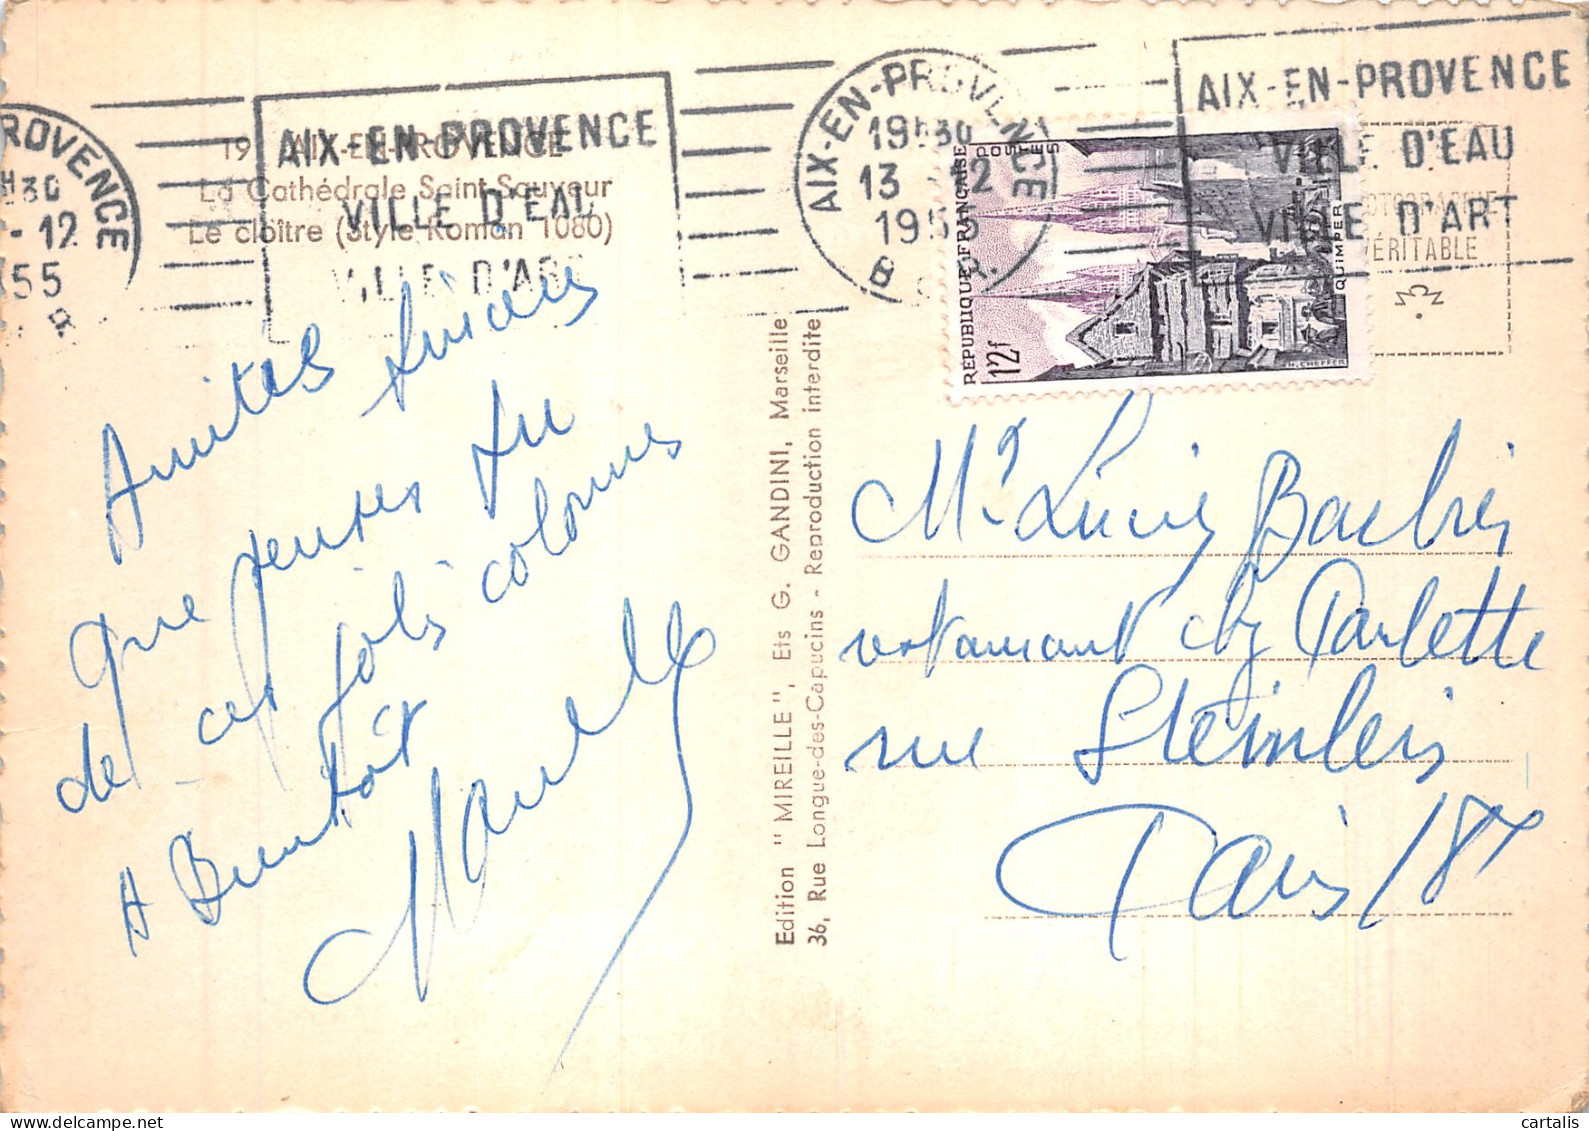 ROVENCE
H30
-12
55
AIX-EN-PROVENCE
VILLE D'EAU
VILLE D'ART
19 AIX-EN-PROVENCE
La Cathédrale Saint Sauveur
Le cloître (Style Roman 1080)
AIX-EN-PROVENCE
19H30
13 -12
1955
AIX-EN-PROVENCE
VILLE D'EAU
VILLE D'ART
POSTES
RÉPUBLIQUE FRANÇAISE
12f
QUIMPER
H. CHEFFER
VÉRITABLE
Amitiés
Que penses tu
de ces jolis colonnes
A Bientôt
Edition "MIREILLE", Ets G. GANDINI, Marseille
36, Rue Longue-des-Capucins - Reproduction interdite
Mr Lucien Barbier
restaurant chez Paulette
rue Steinlein
Paris 18e
cartalis